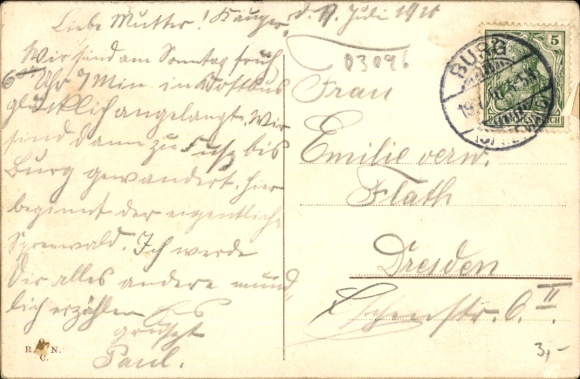 Liebe Mutter! Kauper, d. 17. Juli 1910
Wir sind am Sonntag früh
6 Uhr 7 Min. in Kottbus
glücklich angelangt. Wir
sind dann zu Fuß bis
Burg gewandert, hier
beginnt der eigentliche
Spreewald. Ich werde
Dir alles andere münd-
lich erzählen. Es
grüßt
Paul.
R. & N.
C.
03096
Frau
Emilie verw.
Flath
Dresden
II
3,-
5
BURG
DEUTSCHES REICH